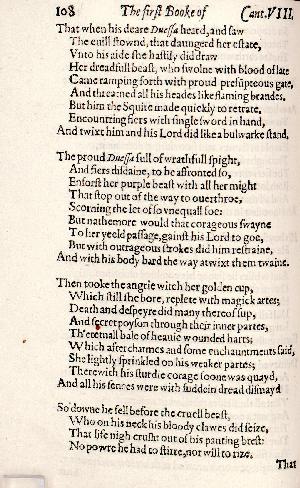 108 The first Booke of Cant. VIII.
That when his deare Duessa heard, and saw
The euill stownd, that daungerd her estate,
Vnto his aide she hastily did draw
Her dreadfull beast, who swolne with blood of late
Came ramping forth with proud presumpteous gate,
And threatned all his heades like flaming brandes.
But him the Squire made quickly to retrate,
Encountring fiers with single sword in hand,
And twixt him and his Lord did like a bulwarke stand.
The proud Duessa full of wrathfull spight,
And fiers disdaine, to be affronted so,
Enforst her purple beast with all her might
That stop out of the way to ouerthroe,
Scorning the let of so vnequall foe:
But nathemore would that corageous swayne
To her yeeld passage, gainst his Lord to goe,
But with outrageous strokes did him restraine,
And with his body bard the way atwixt them twaine.
Then tooke the angrie witch her golden cup,
Which still she bore, replete with magick artes;
Death and despeyre did many thereof sup,
And secret poyson through their inner partes,
Th'eternall bale of heauie wounded harts;
Which after charmes and some enchauntments said,
She lightly sprinkled on his weaker partes;
Therewith his sturdie corage soone was quayd,
And all his sences were with suddein dread dismayd
So downe he fell before the cruell beast,
Who on his neck his bloody clawes did seize,
That life nigh crusht out of his panting brest:
No powre he had to stirre, nor will to rize.
That